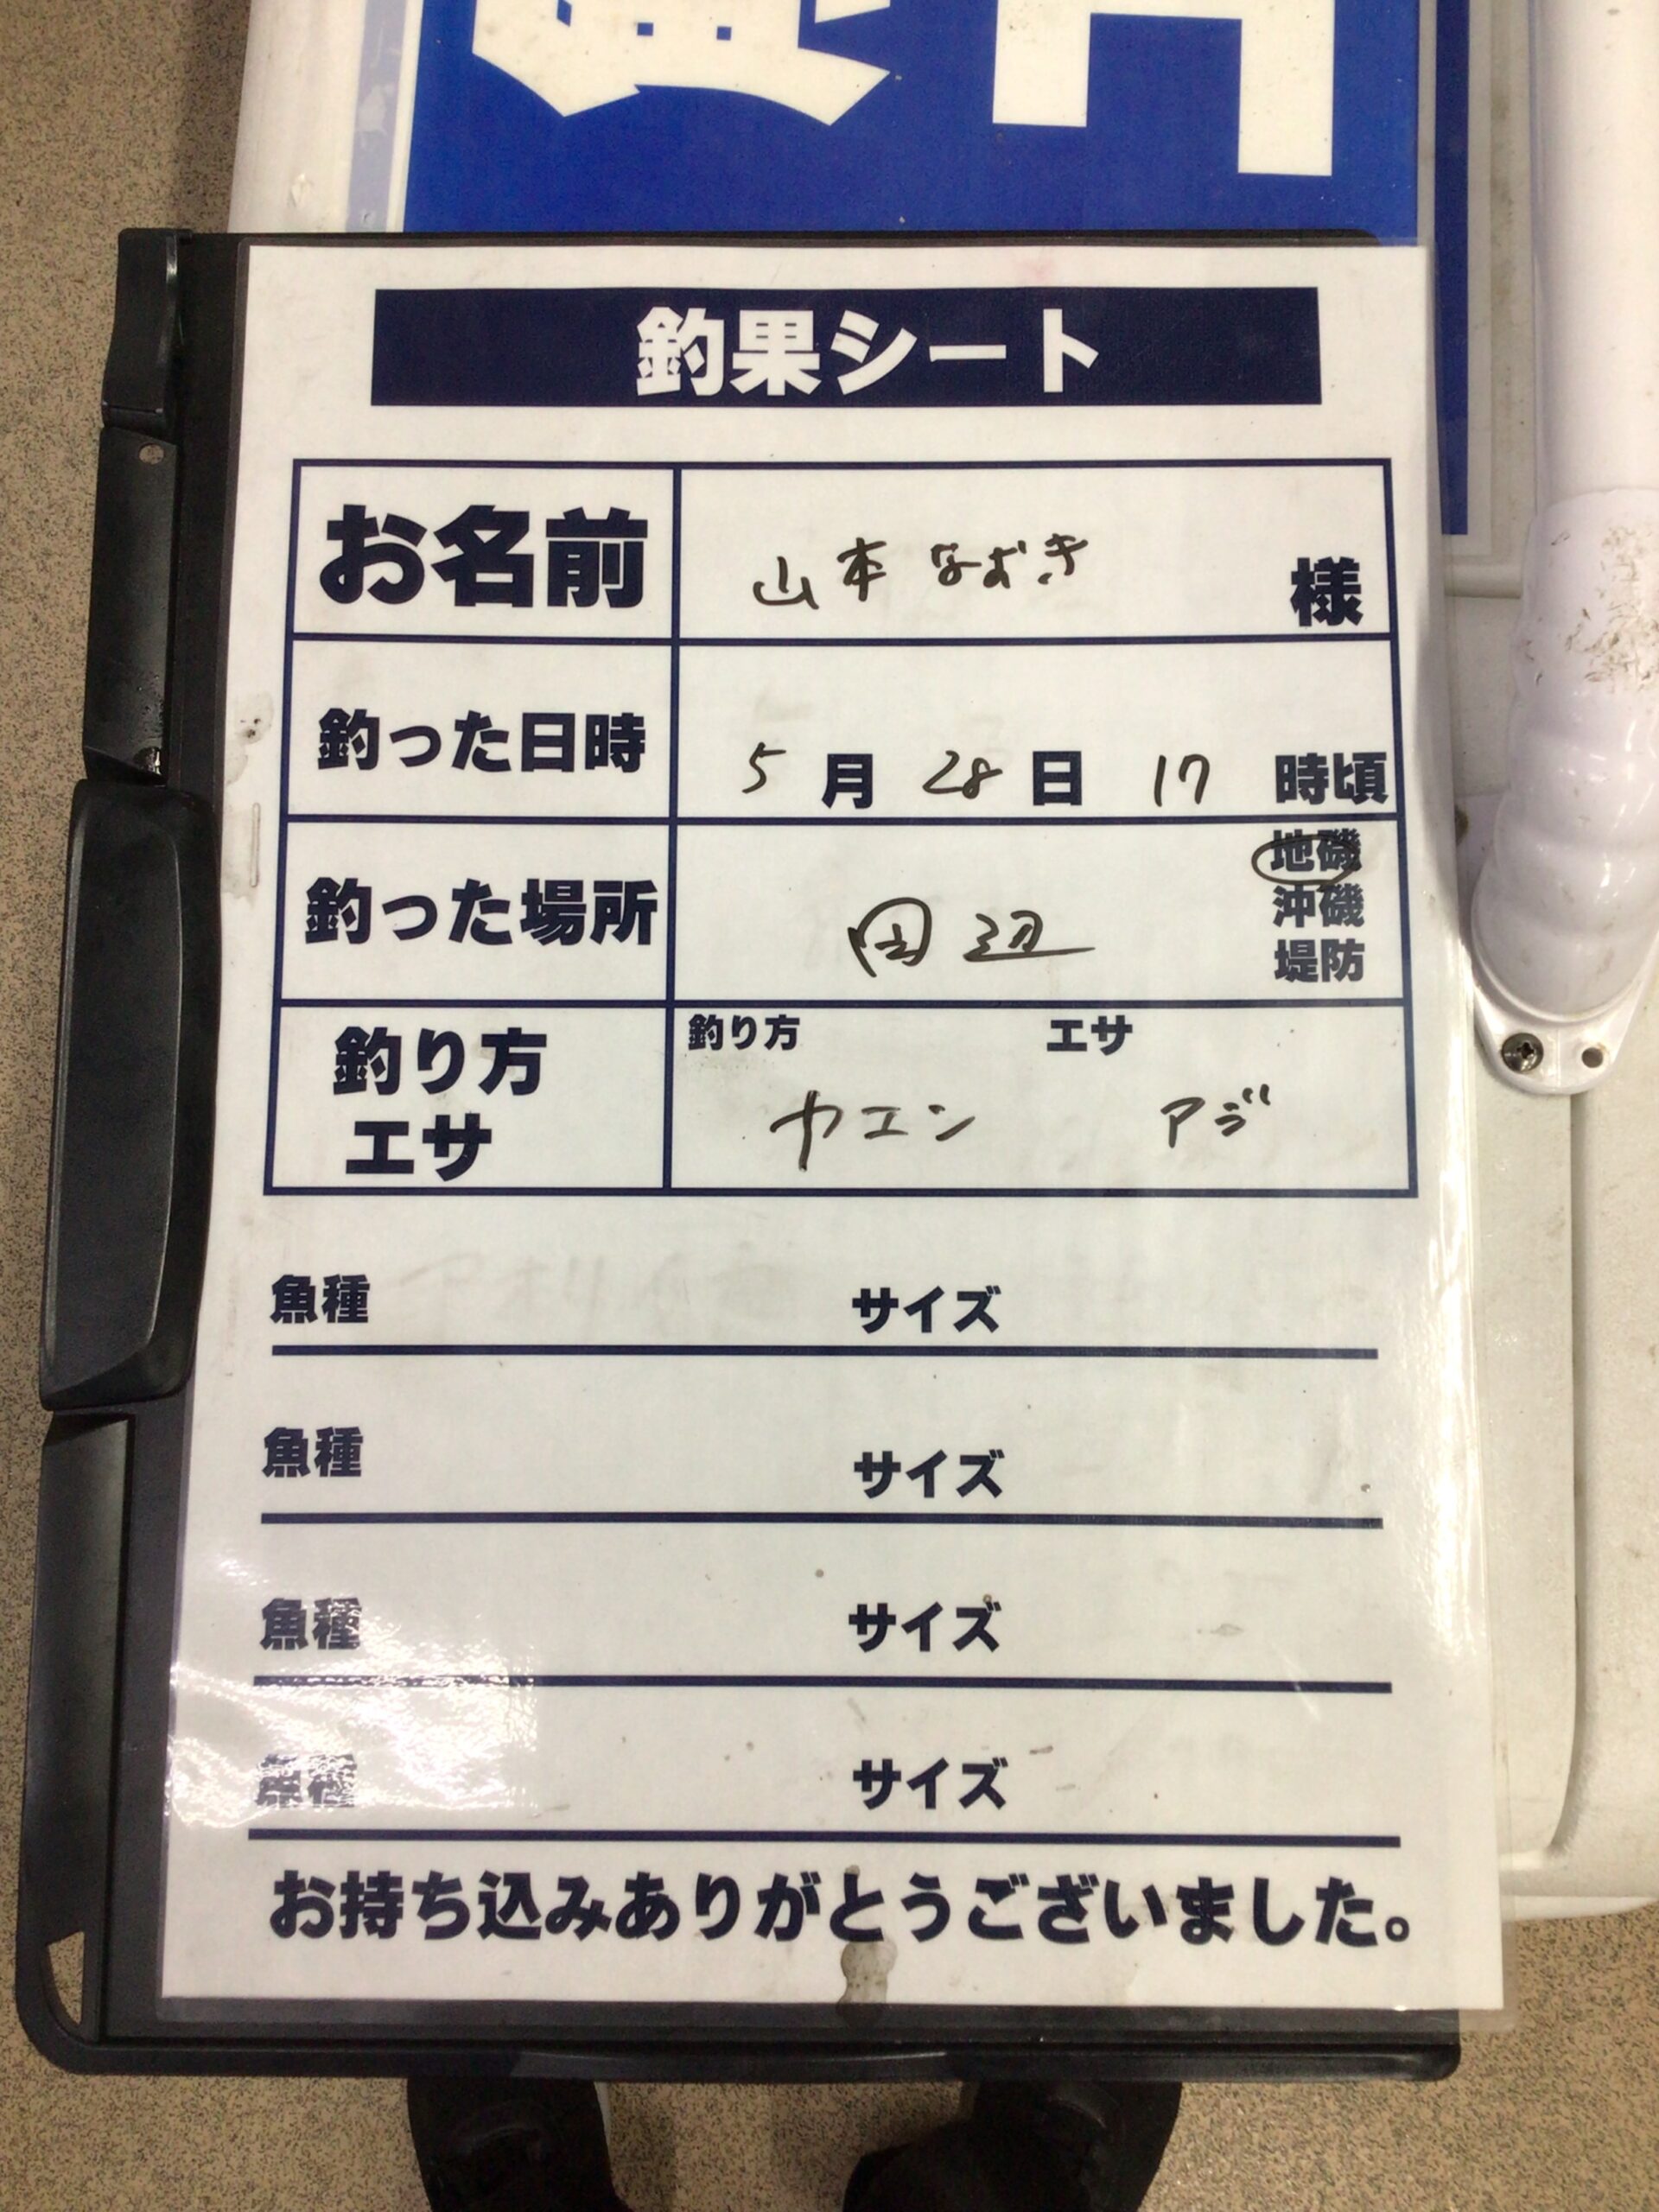 釣果シート
お名前 山本 なおき 様
釣った日時 5月28日 17時頃
釣った場所 周辺 地磯
沖磯
堤防
釣り方 エサ
釣り方 ヤエン エサ アジ
魚種 サイズ
魚種 サイズ
魚種 サイズ
魚種 サイズ
お持ち込みありがとうございました。